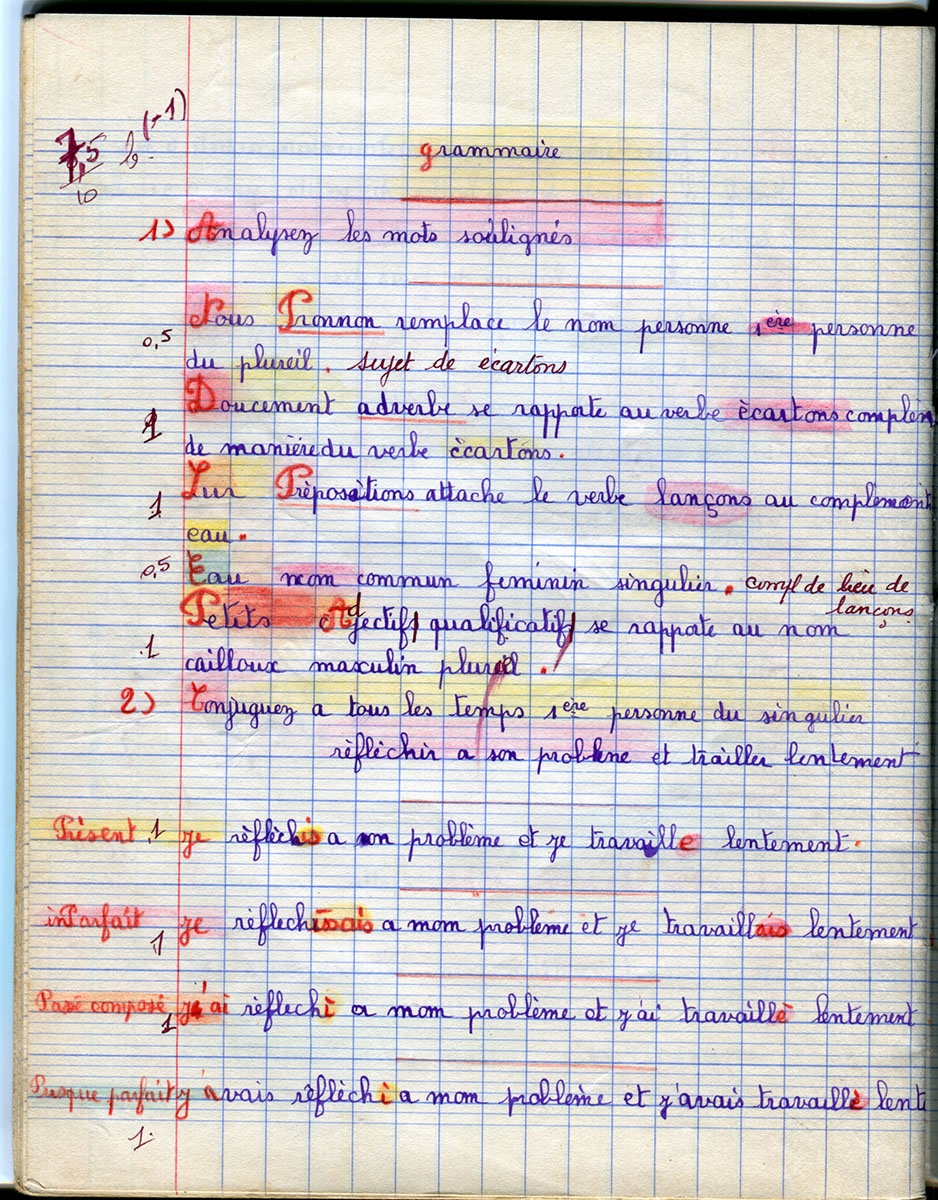 (-1)
7,5 b.
10
grammaire
1) Analysez les mots soulignés
Nous Pronnon remplace le nom personne 1ère personne
0,5
du plureil. sujet de écartons
Doucement adverbe se rapporte au verbe ècartons complèm
1
de maniéredu verbe ècartons.
Sur Prèposétions attache le verbe lançons au complement
1
eau.
0,5 Eau nom commun feminin singulier. compl de lieu de
lançons
Petits Adjectif qualificatif se rapporte au nom
1
cailloux masculin pluriel.
2) Conjuguez a tous les temps 1ère personne du singulier
rèflèchir a son problène et trailler lentement
Présent 1 je rèflèchis a mon problème et je travaille lentement.
inParfait je rèflechissais a mom problème et je travaillais lentement
1
Passé composé j'ai rèflechi a mom problème et j'ai travaillè lentement
1
Plusque parfait j'avais rèflèchi a mom problème et j'avais travaillè lent
1.